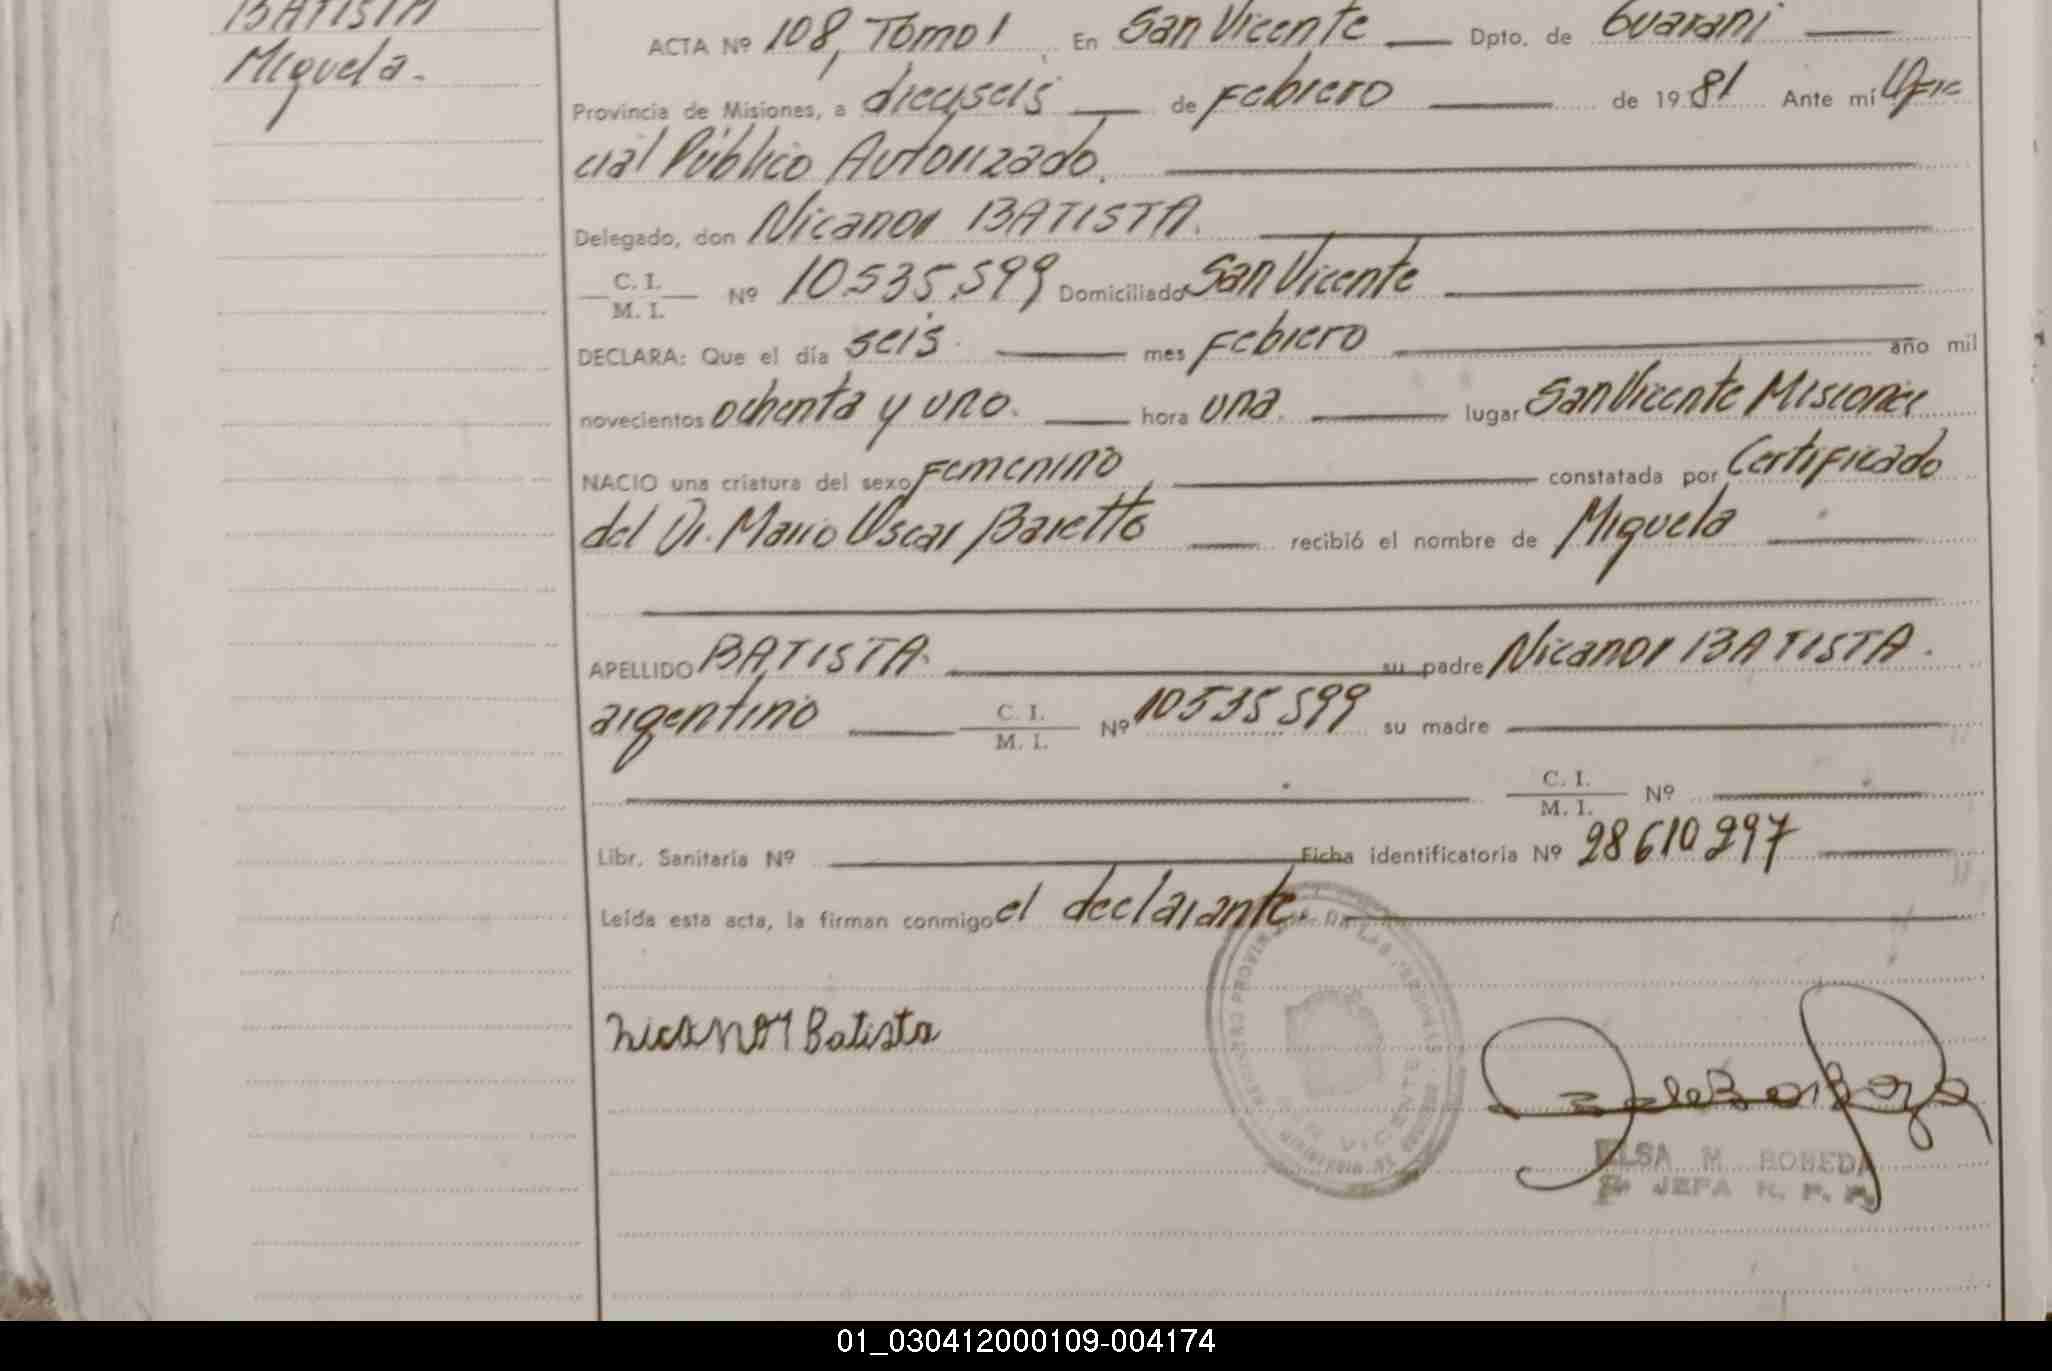 BATISTA
Miguela.
ACTA Nº 108, Tomo I En San Vicente Dpto. de Guaraní
Provincia de Misiones, a dieciseis de Febrero de 1981 Ante mí Ofic
cial Público Autorizado.
Delegado, don Nicanor BATISTA.
C. I.
M. I. Nº 10.535.599 Domiciliado San Vicente
DECLARA: Que el día seis mes Febrero año mil
novecientos ochenta y uno. hora una. lugar San Vicente Misiones
NACIO una criatura del sexo Femenino, constatada por Certificado
del Dr. Mario Oscar Baretto recibió el nombre de Miguela
APELLIDO BATISTA. su padre Nicanor BATISTA.
argentino C. I.
M. I. Nº 10535599 su madre
C. I.
M. I. Nº
Libr. Sanitaria Nº Ficha identificatoria Nº 28610297
Leída esta acta, la firman conmigo el declarante.
Nicanor Batista
VICENTE
ELSA M. BOBEDA
JEFA R. P. P.
01_030412000109-004174